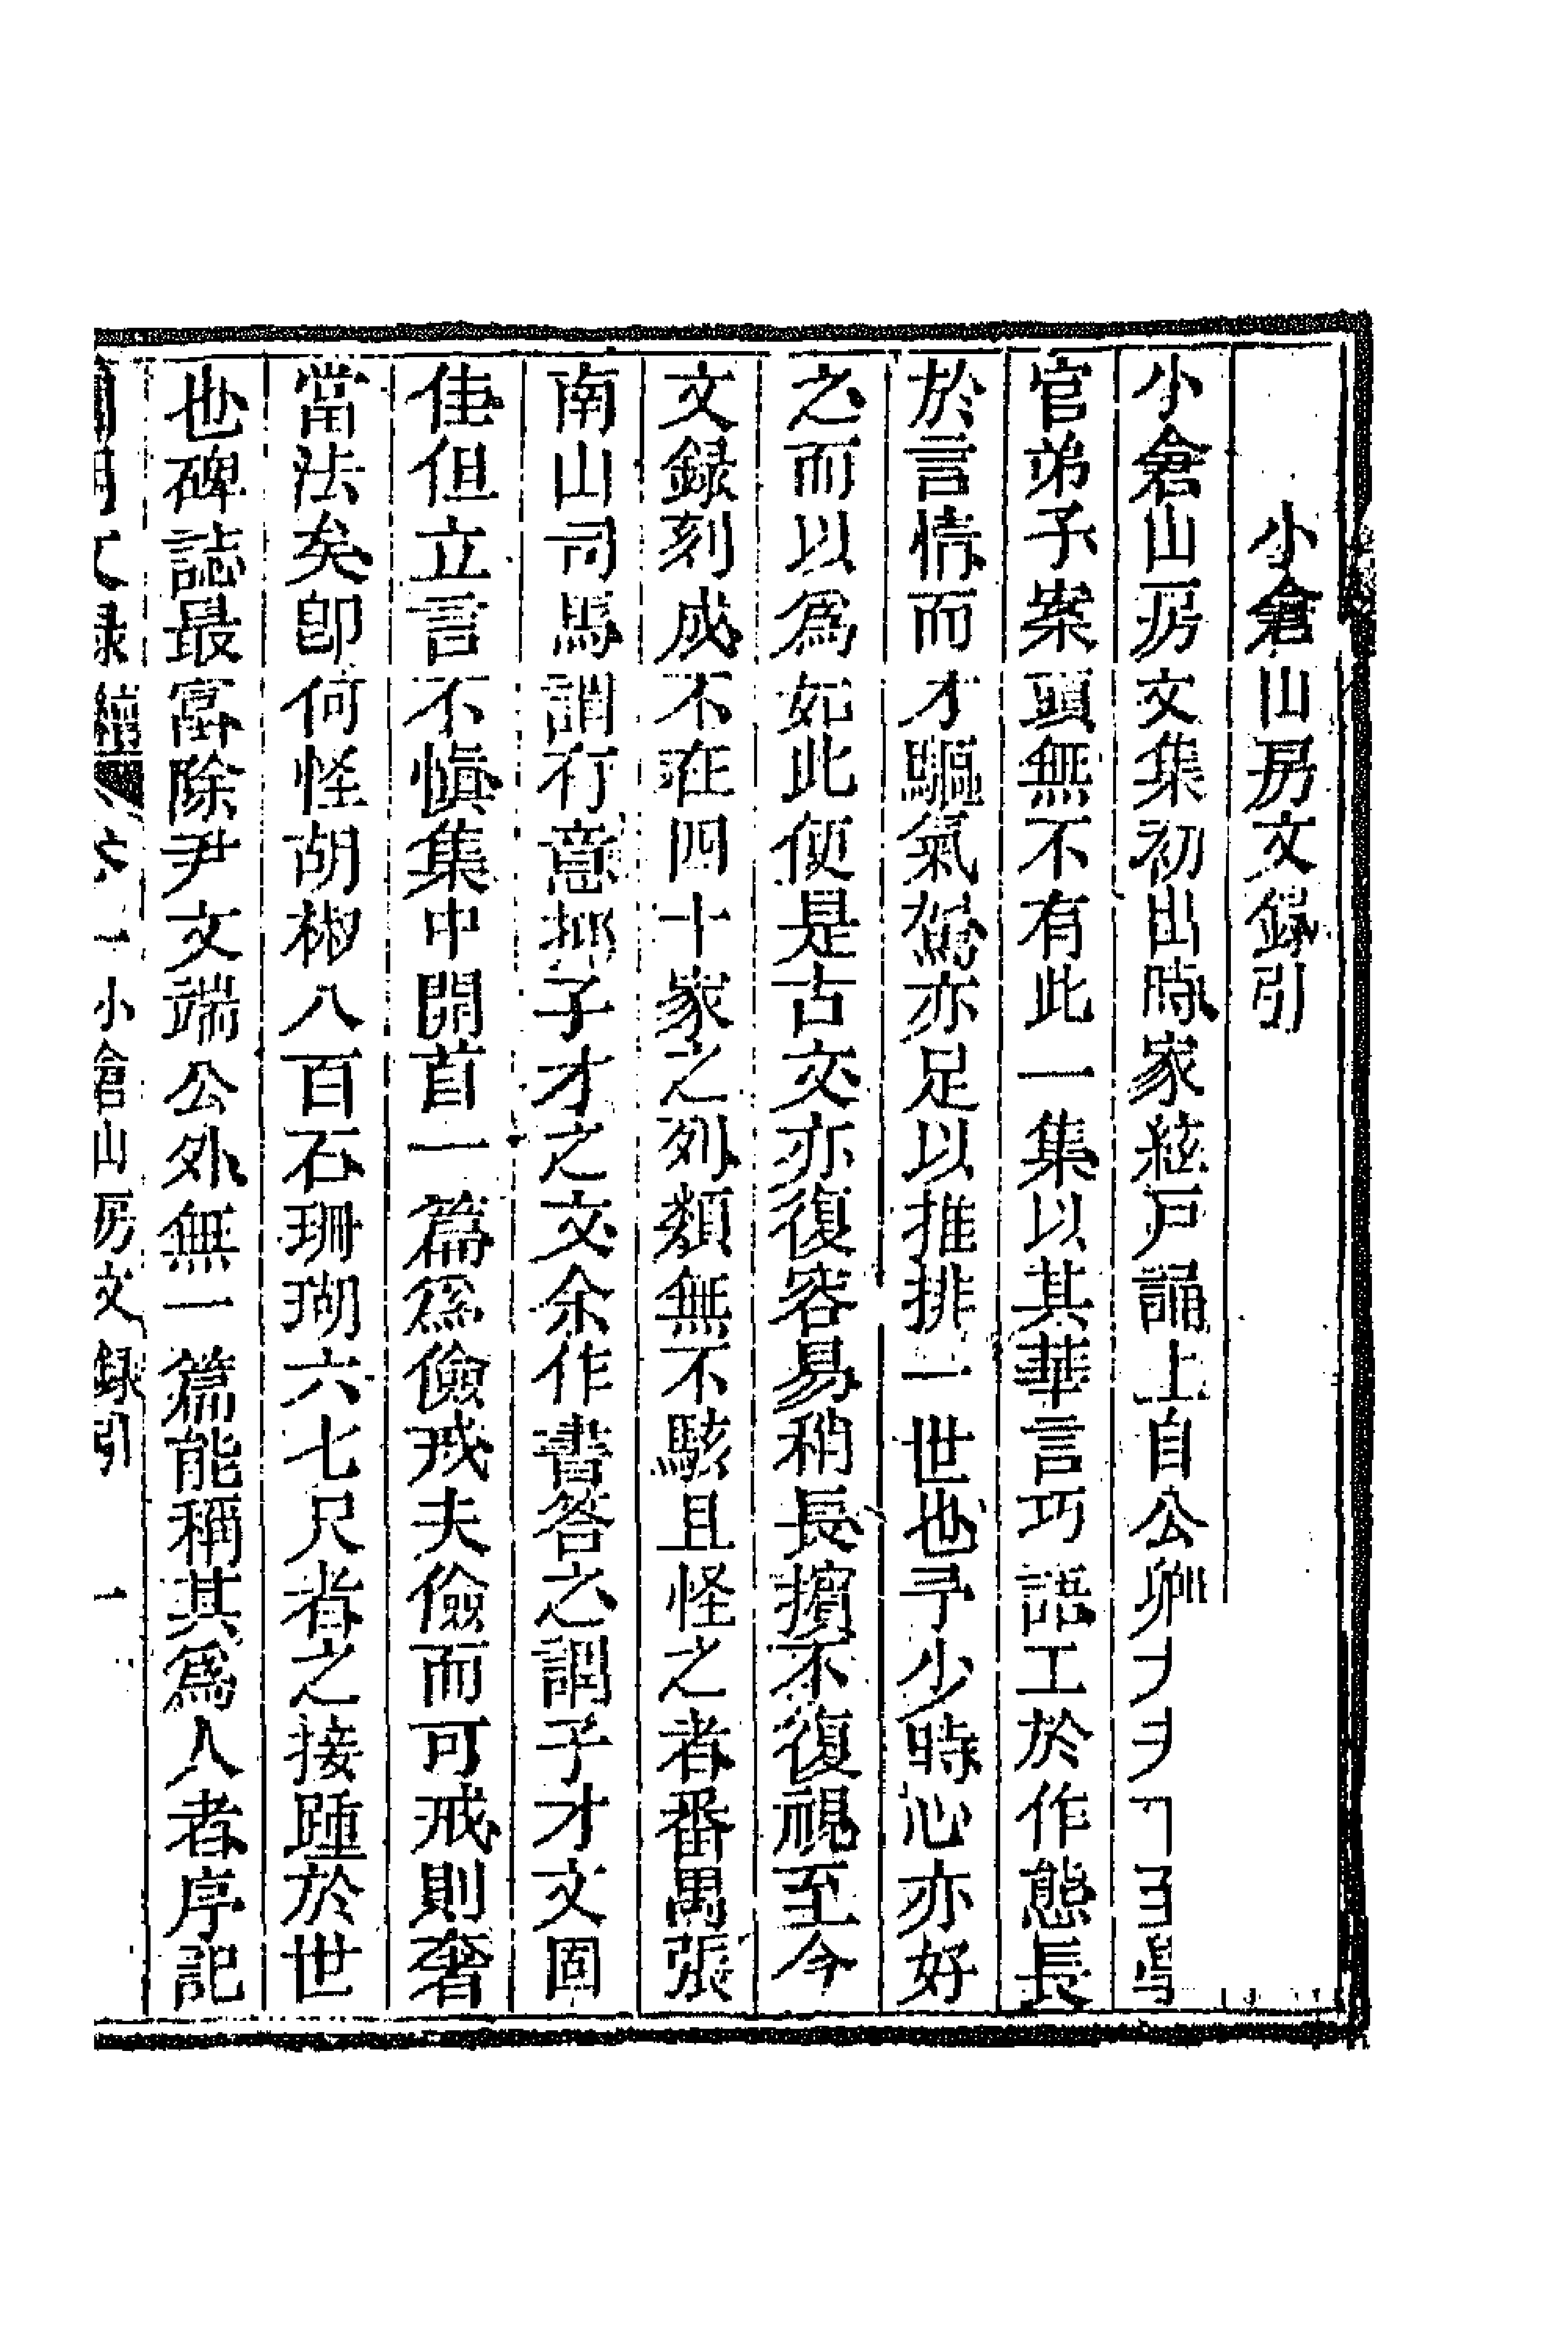 小倉山房文錄引
小倉山房文集初出時家絃戸誦上自公卿
官弟子案頭無不有此一集以其華言巧語工於作態長
於言情而才驅氣駕亦足以推排一世也予少時心亦好
之而以爲如此便是古文亦復容易稍長擯不復視至今
文録刻成不在四十家之列頗無不駭且怪之者番禺張
南山司馬謂有意抑子才之文余作書答之謂子才文固
佳但立言不愼集中開首一篇爲儉戒夫儉而可戒則奢
當法矣卽何怪胡椒八百石珊瑚六七尺者之接踵於世
也碑誌最富除尹文端公外無一篇能稱其爲人者序記
國朝文録續 卷一小倉山房文録引 一